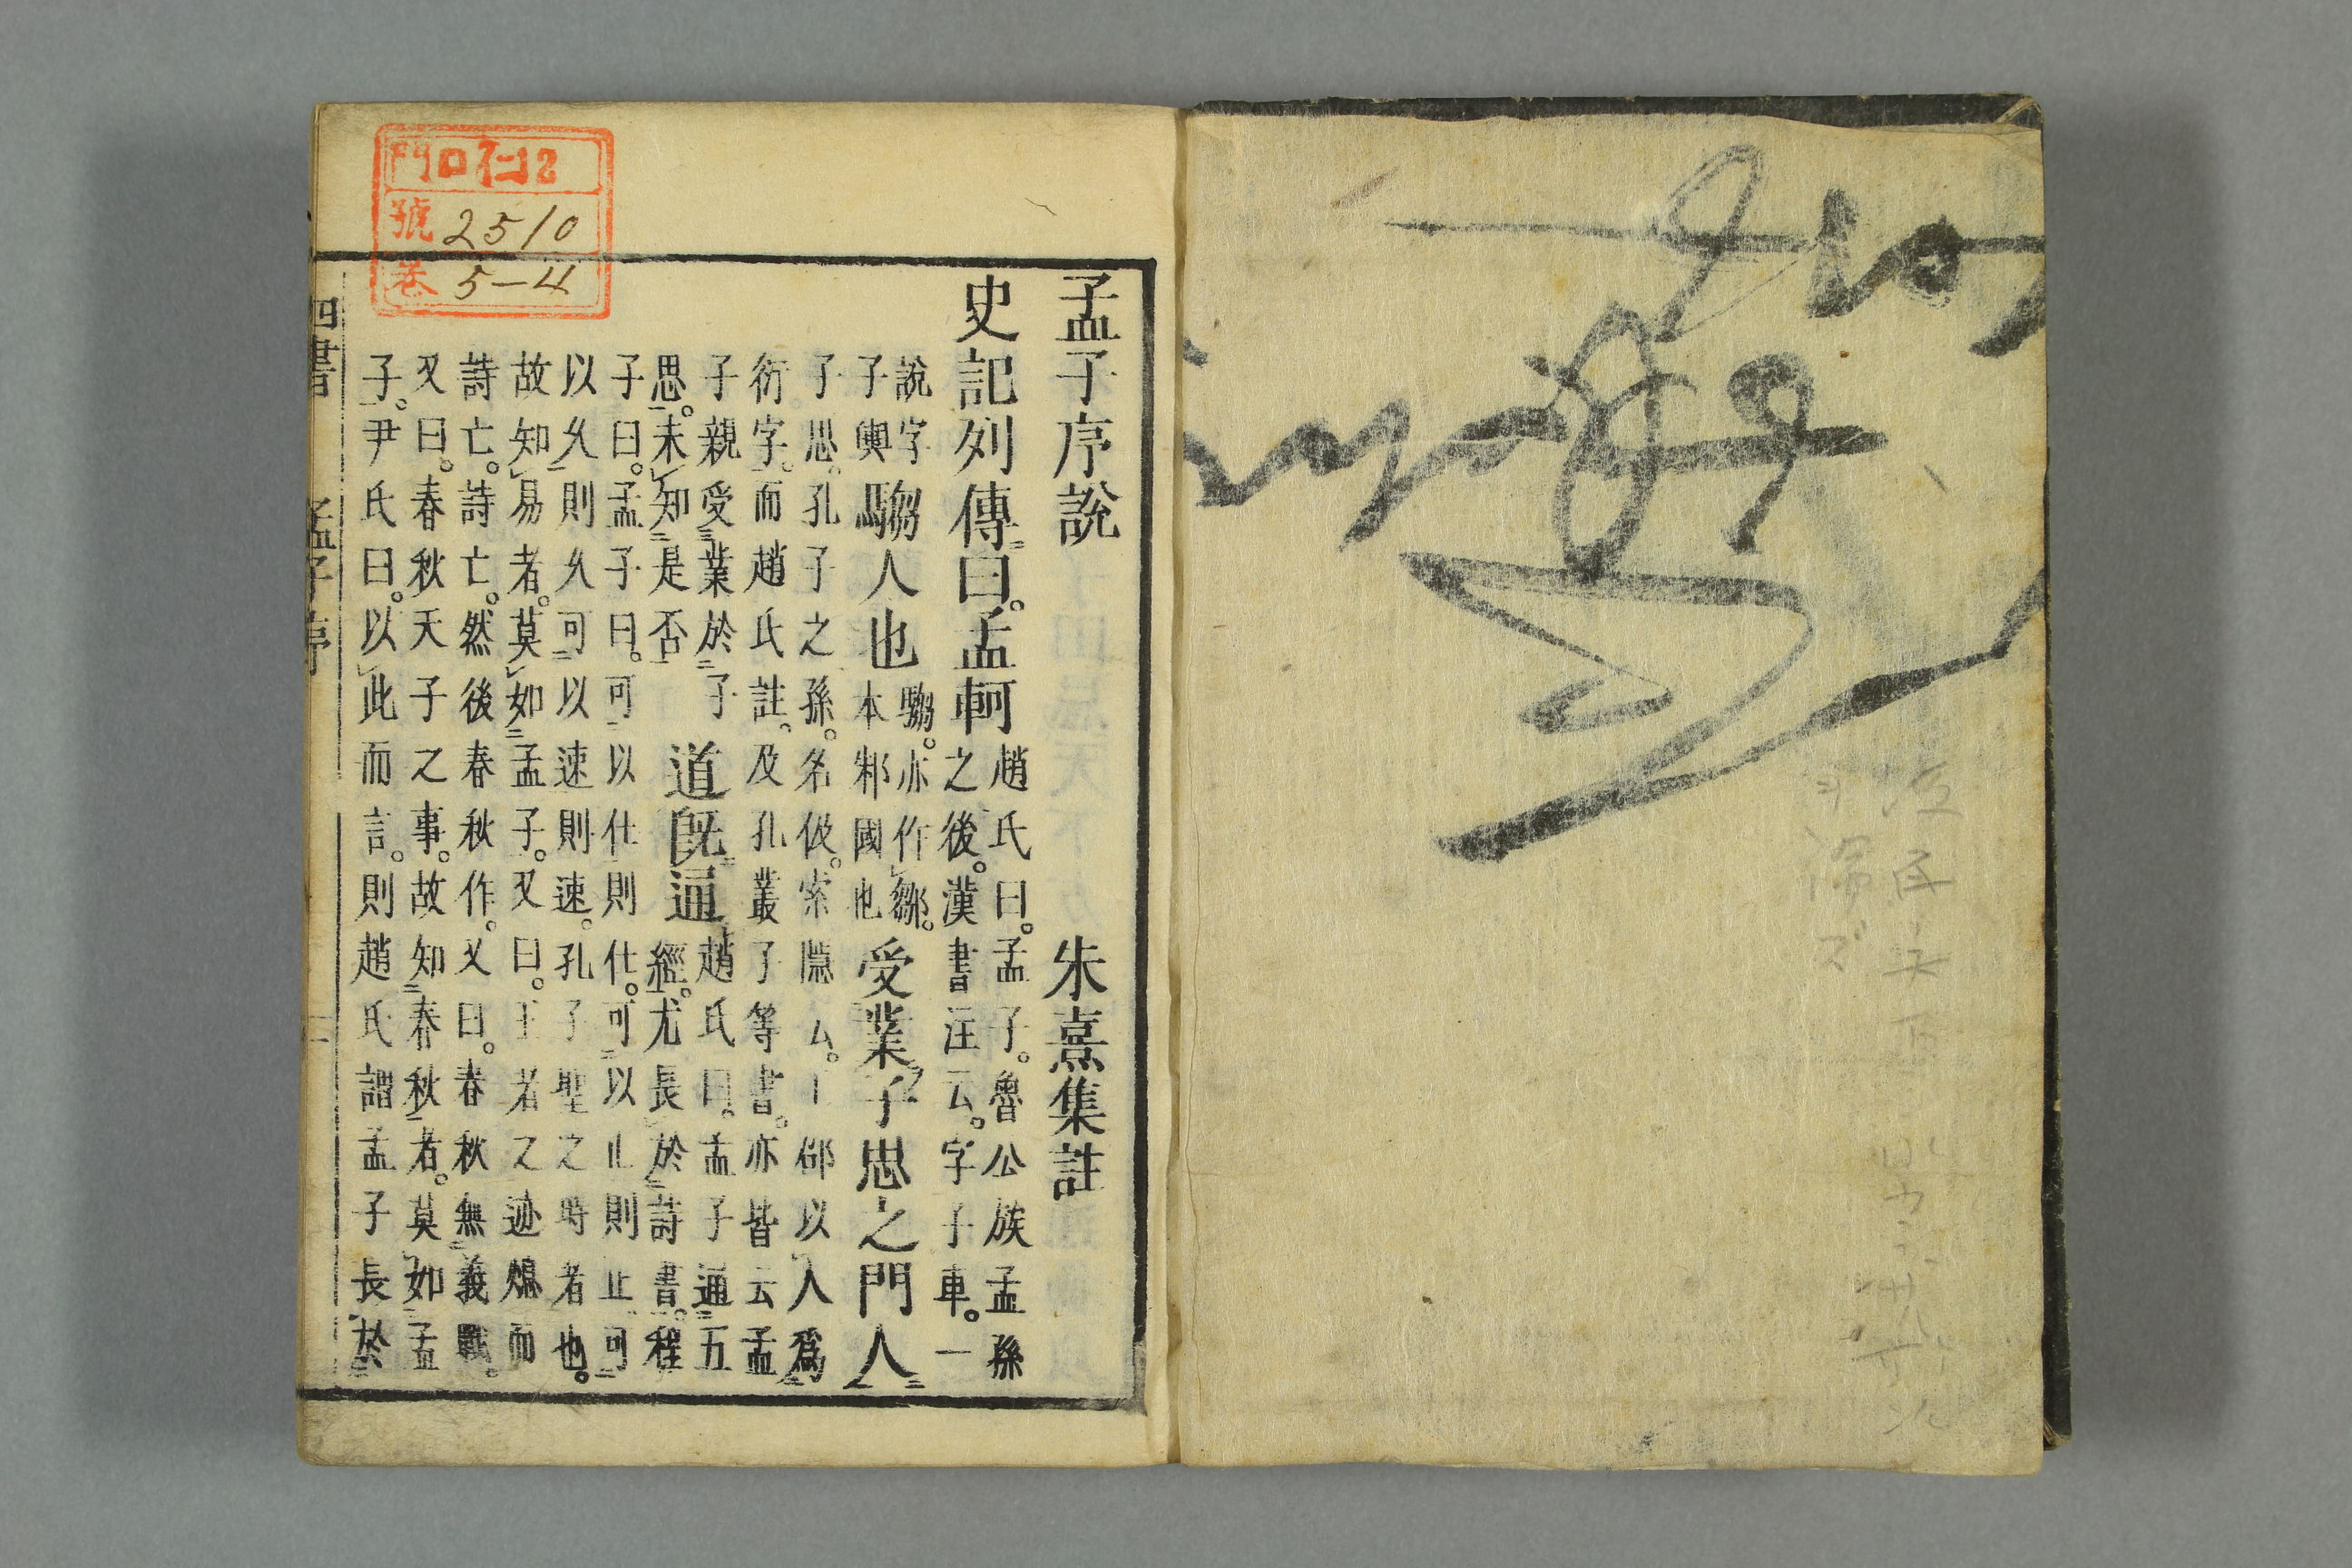 孟子序說　朱熹集註
史記列傳曰。孟軻
趙氏曰。孟子。魯公族孟孫
之後。漢書注云。字子車。一
說字
子輿
騶人也
騶。亦作鄒。
本邾國也
受業子思之門人
子思。孔子之孫。名伋。索隱云。王邵以人爲
衍字。而趙氏註。及孔叢子等書。亦皆云孟
子親受業於子
思。未知是否
道既通
趙氏曰。孟子通五
經。尤長於詩書。程
子曰。孟子曰。可以仕則仕。可以止則止。可
以久則久可以速則速。孔子聖之時者也。
故知易者。莫如孟子。又曰。王者之迹熄而
詩亡。詩亡。然後春秋作。又曰。春秋無義戰。
又曰。春秋天子之事。故知春秋者。莫如孟
子。尹氏曰。以此而言。則趙氏謂孟子長於
四書　孟子序
門 口仁12
號 2510
卷 5-4